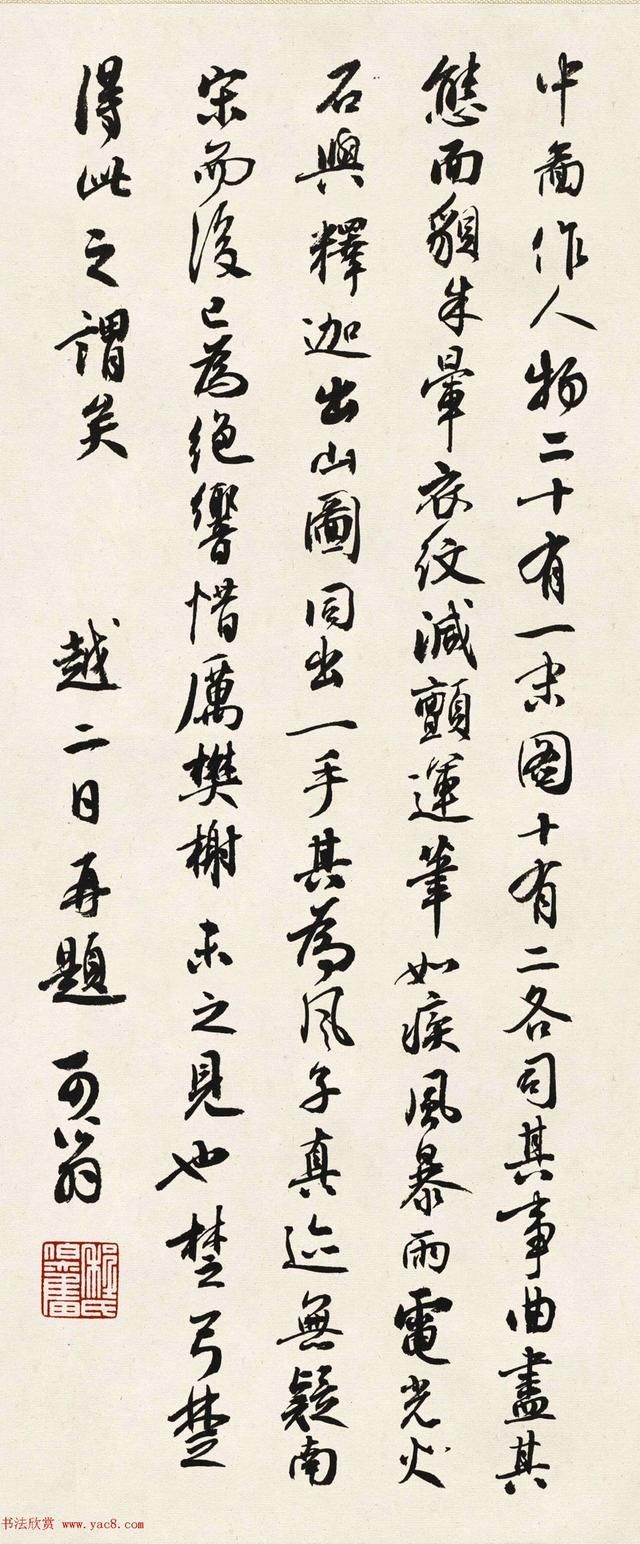 中啚作人物二十有一圖十有二各司其事曲盡其
態面䫉朱暈衣紋減顫運筆如疾風暴雨電光火
石與釋迦出山圖同出一手其為風子真迹無疑南
宋而後已為絕響惜厲樊榭未之見也楚弓楚
得此之謂矣 越二日再題 可翁
书法欣赏 www.yac8.com